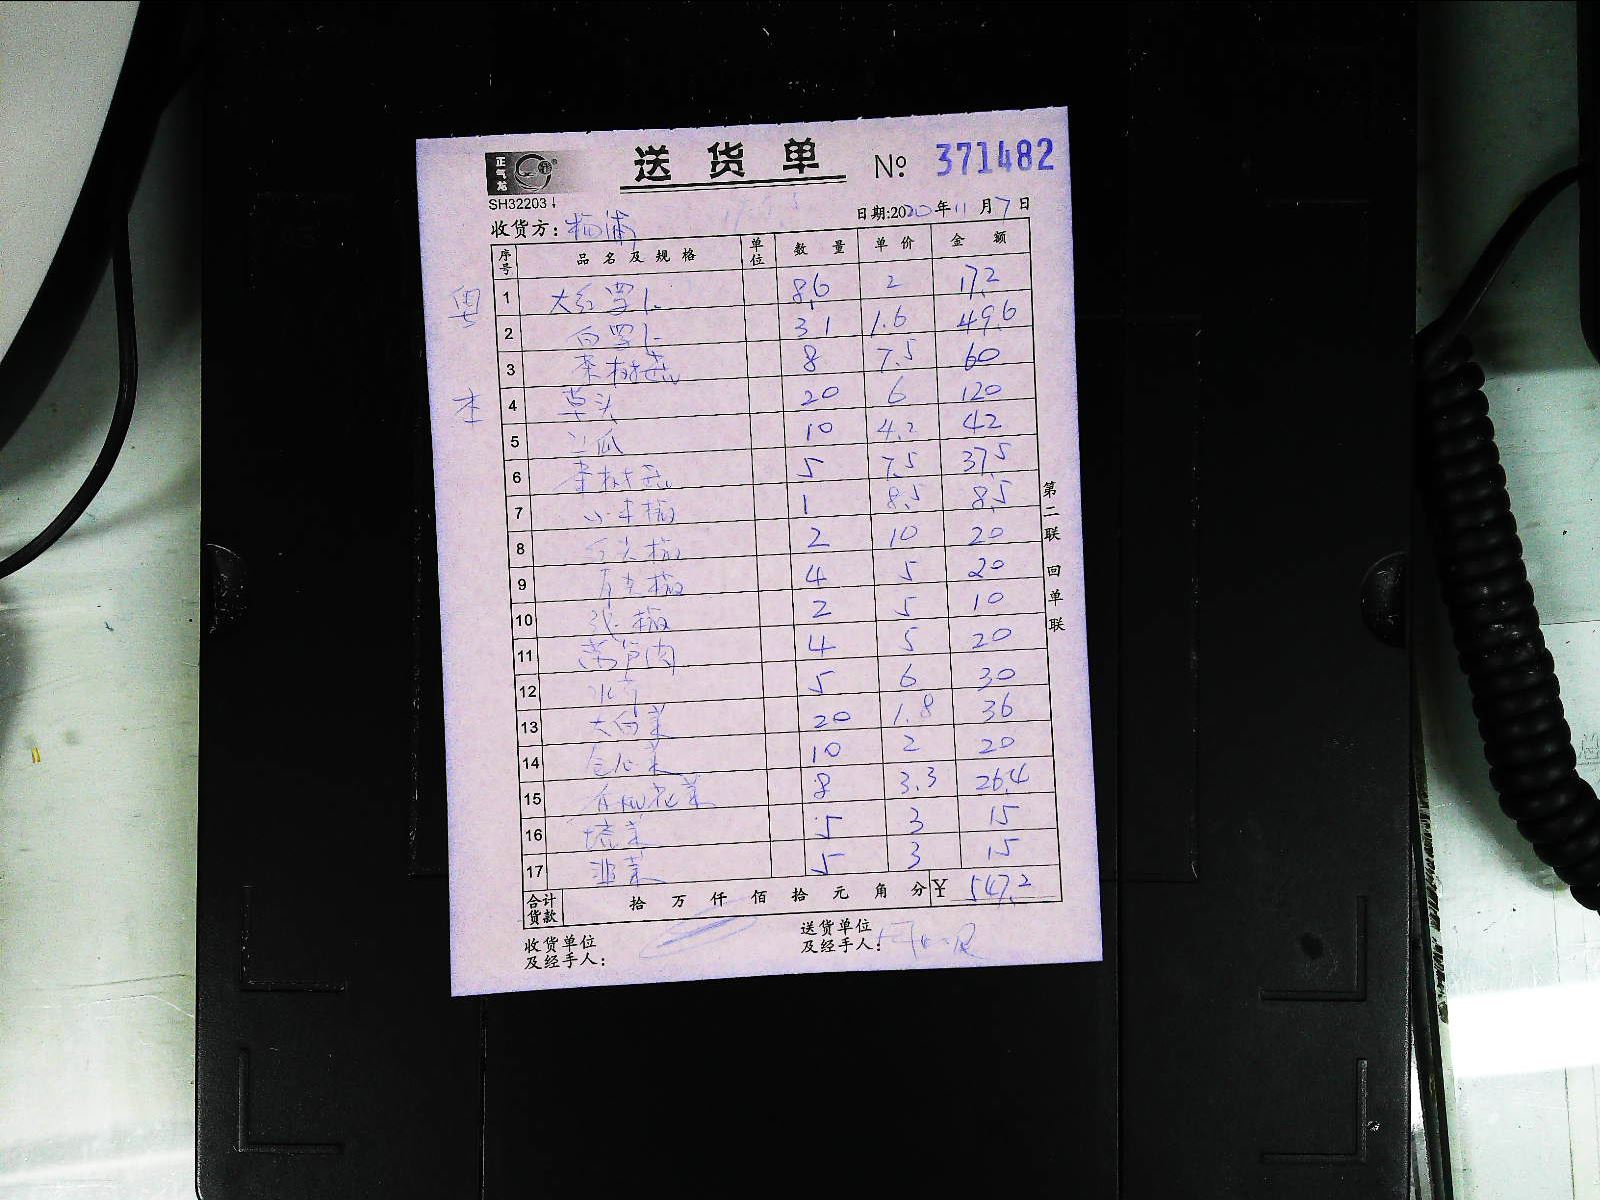 正气龙
送货单 № 371482
SH32203
收货方:杨浦 日期:2020年11月7日
序号 品名及规格 单位 数量 单价 金额
1 大红罗卜 8.6 2 17.2
2 白罗卜 31 1.6 49.6
3 茶树菇 8 7.5 60
4 草头 20 6 120
5 瓜 10 4.2 42
6 茶树菇 5 7.5 37.5
7 小米椒 1 8.5 8.5
8 椒 2 10 20
9 椒 4 5 20
10 椒 2 5 10
11 肉 4 5 20
12 水芹 5 6 30
13 大白菜 20 1.8 36
14 菜 10 2 20
15 有机花菜 8 3.3 26.4
16 塔菜 5 3 15
17 韭菜 5 3 15
合计货款 拾万仟佰拾元角分 ¥ 547.2
收货单位及经手人:
送货单位及经手人:
第二联 回单联